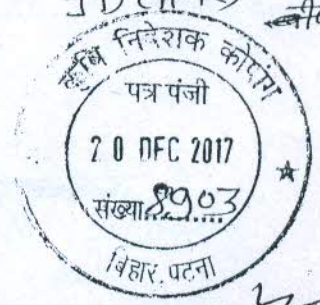 कृषि निदेशक कोषांग
पत्र पंजी
20 DEC 2017
संख्या 8903
बिहार, पटना